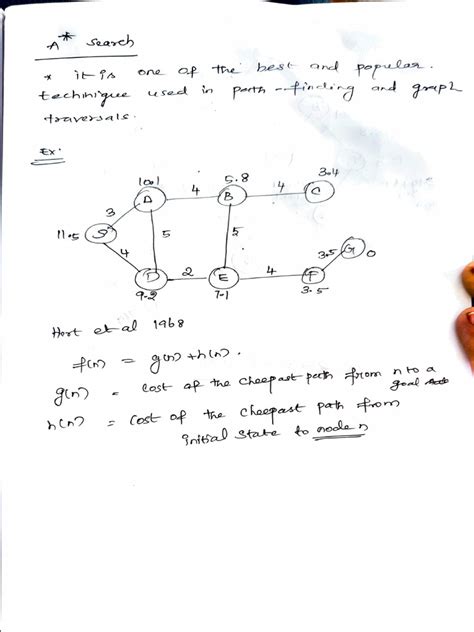 A* Search
* it is one of the best and popular.
techinique used in path-finding and graph
traversals.
Ex:
10.1 5.8 3.4
A 4 B 4 C
3
11.5 S 5 5 3.5 G 0
4
D 2 E 4 F
9.2 7.1 3.5
Hart et al 1968
f(n) = g(n) + h(n).
g(n) = cost of the cheepast path from n to a
goal node
h(n) = cost of the cheepast path from
initial state to node n